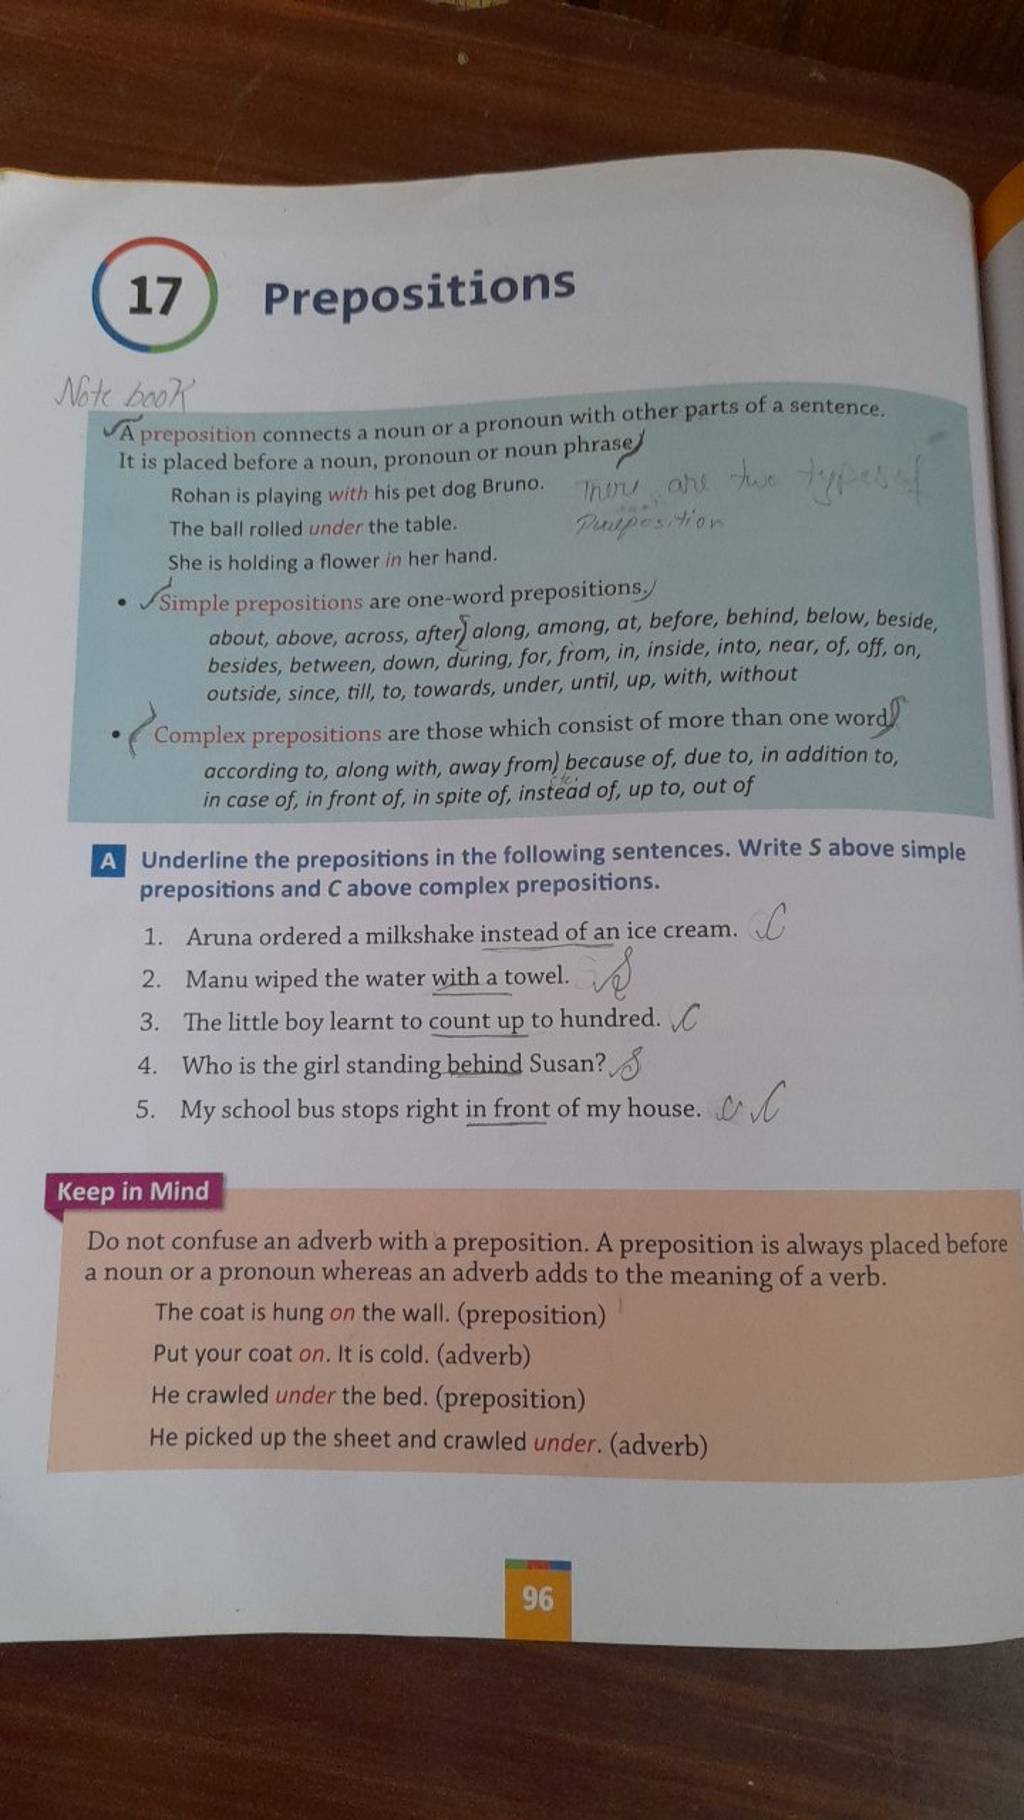 17
Prepositions
Note book
A preposition connects a noun or a pronoun with other parts of a sentence.
It is placed before a noun, pronoun or noun phrase
Rohan is playing with his pet dog Bruno.
There are two types of
The ball rolled under the table.
Pureposition
She is holding a flower in her hand.
• Simple prepositions are one-word prepositions.
about, above, across, after) along, among, at, before, behind, below, beside,
besides, between, down, during, for, from, in, inside, into, near, of, off, on,
outside, since, till, to, towards, under, until, up, with, without
• Complex prepositions are those which consist of more than one word
according to, along with, away from) because of, due to, in addition to,
etc.
in case of, in front of, in spite of, instead of, up to, out of
A Underline the prepositions in the following sentences. Write S above simple
prepositions and C above complex prepositions.
1. Aruna ordered a milkshake instead of an ice cream. C
2. Manu wiped the water with a towel. S
3. The little boy learnt to count up to hundred. C
4. Who is the girl standing behind Susan? S
5. My school bus stops right in front of my house. C
Keep in Mind
Do not confuse an adverb with a preposition. A preposition is always placed before
a noun or a pronoun whereas an adverb adds to the meaning of a verb.
The coat is hung on the wall. (preposition)
Put your coat on. It is cold. (adverb)
He crawled under the bed. (preposition)
He picked up the sheet and crawled under. (adverb)
96